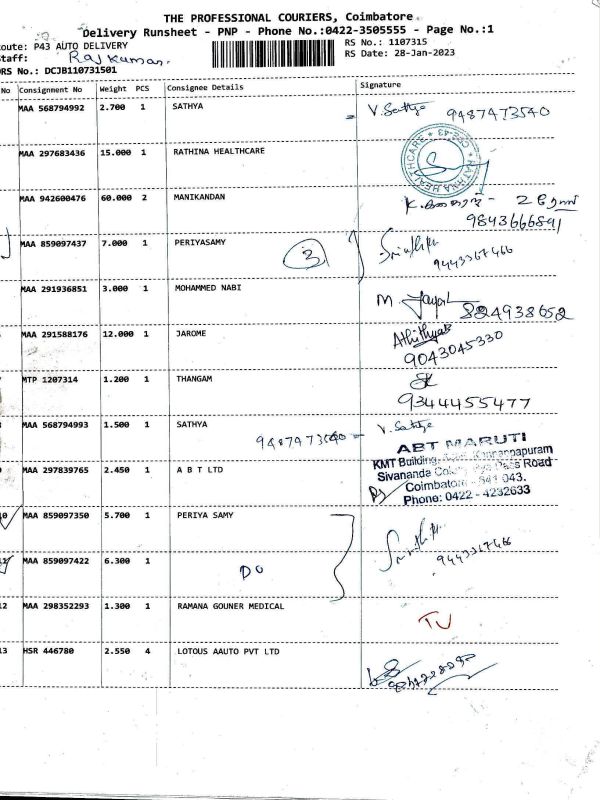 THE PROFESSIONAL COURIERS, Coimbatore
Delivery Runsheet - PNP - Phone No.:0422-3505555 - Page No.:1
oute: P43 AUTO DELIVERY
RS No.: 1107315
taff: Rajkumar.
RS Date: 28-Jan-2023
RS No.: DCJB110731501
No Consignment No Weight PCS Consignee Details Signature
MAA 568794992 2.700 1 SATHYA = V. Sathya 9487473540
MAA 297683436 15.000 1 RATHINA HEALTHCARE
RATHINA HEALTHCARE * CBE-43 *
MAA 942600476 60.000 2 MANIKANDAN
9843666891
MAA 859097437 7.000 1 PERIYASAMY 3
9443367466
MAA 291936851 3.000 1 MOHAMMED NABI M
8824938652
MAA 291588176 12.000 1 JAROME
9043045330
MTP 1207314 1.200 1 THANGAM
9344455477
MAA 568794993 1.500 1 SATHYA 9487473540 = V. Sathya
MAA 297839765 2.450 1 A B T LTD
ABT MARUTI
KMT Building, Kannappapuram
Sivananda Colony, Bye Pass Road
Coimbatore - 641 043.
Phone: 0422 - 4232633
10 MAA 859097350 5.700 1 PERIYA SAMY
9443367466
MAA 859097422 6.300 1 DO
12 MAA 298352293 1.300 1 RAMANA GOUNER MEDICAL
TV
13 HSR 446780 2.550 4 LOTOUS AAUTO PVT LTD